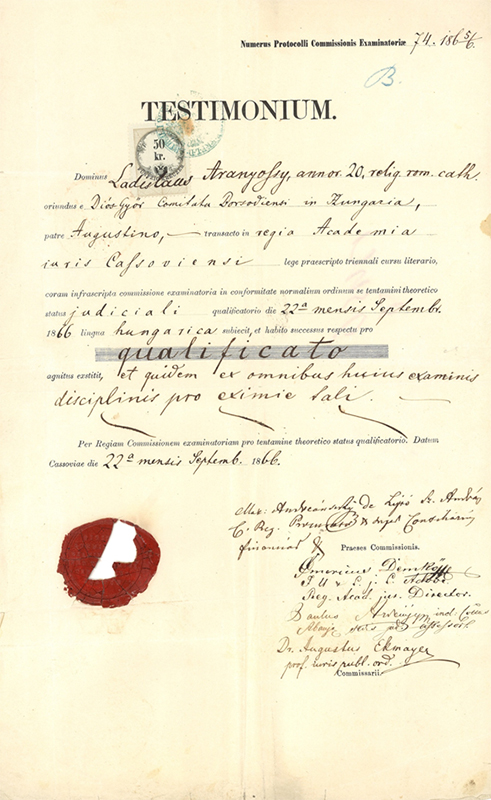 Numerus Protocolli Commissionis Examinatoriæ 74. 186 5/6
B.
TESTIMONIUM.
50
kr.
Dominus Ladislaus Aranyossy, annor. 20, relig. rom. cath.
oriundus e Diós Győr Comitatu Borsodiensi in Hungaria,
patre Augustino, — transacto in regia Academia
iuris Cassoviensi lege praescripto triennali cursu literario,
coram infrascripta commissione examinatoria in conformitate normalium ordinum se tentamini theoretico
status judiciali qualificatorio die 22a mensis Septembr.
1866 lingua hungarica subiecit, et habito successus respectu pro
qualificato
agnitus exstitit, et quidem ex omnibus huius examinis
disciplinis pro eximie tali. —
Per Regiam Commissionem examinatoriam pro tentamine theoretico status qualificatorio. Datum
Cassoviae die 22a mensis Septemb. 1866.
Max: Andreánszky de Liptó Sz. András
C. Reg. Consiliarius
Praeses Commissionis.
Emericus Demkó
Reg. Acad. jur. Director.
Paulus
Dr. Augustus Ekmayer
prof. iuris publ. ord.
Commissarii.